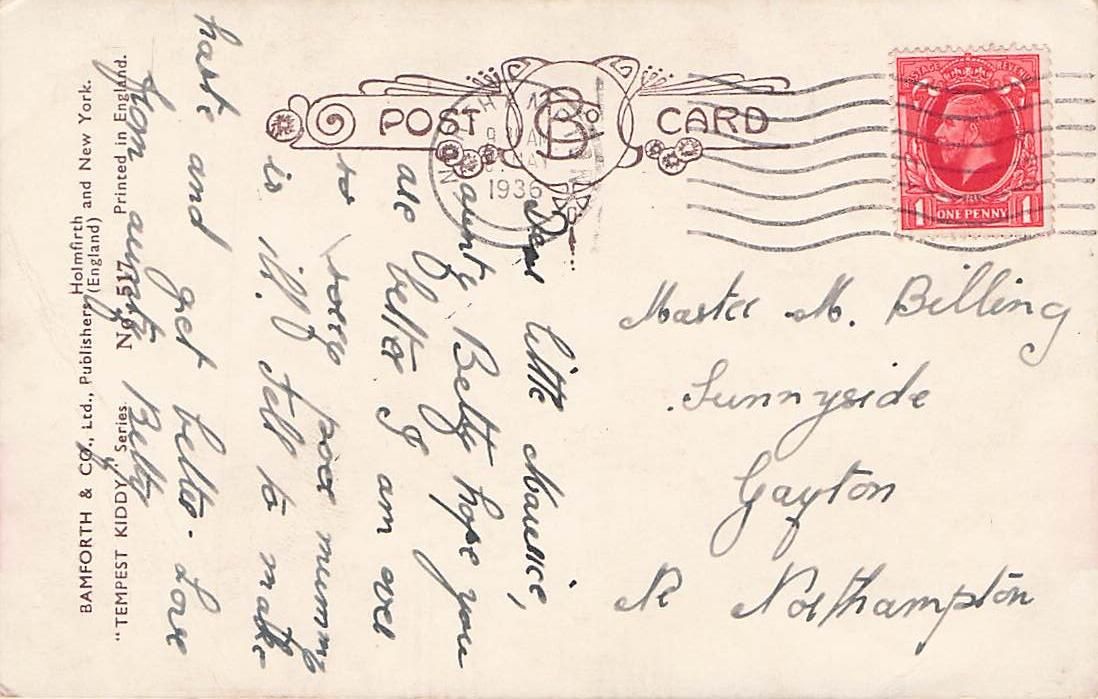 POST Bo CARD
1936
POSTAGE REVENUE
1 ONE PENNY 1
Dear little Maurice,
aunty Betty hope you
are better I am ever
so sorry poor mummy
is ill. tell to make
haste and get better. Love
from aunty Betty
Master M. Billing
Sunnyside
Gayton
Nr Northampton
BAMFORTH & CO., Ltd., Publishers Holmfirth (England) and New York.
"TEMPEST KIDDY" Series. No. 517 Printed in England.